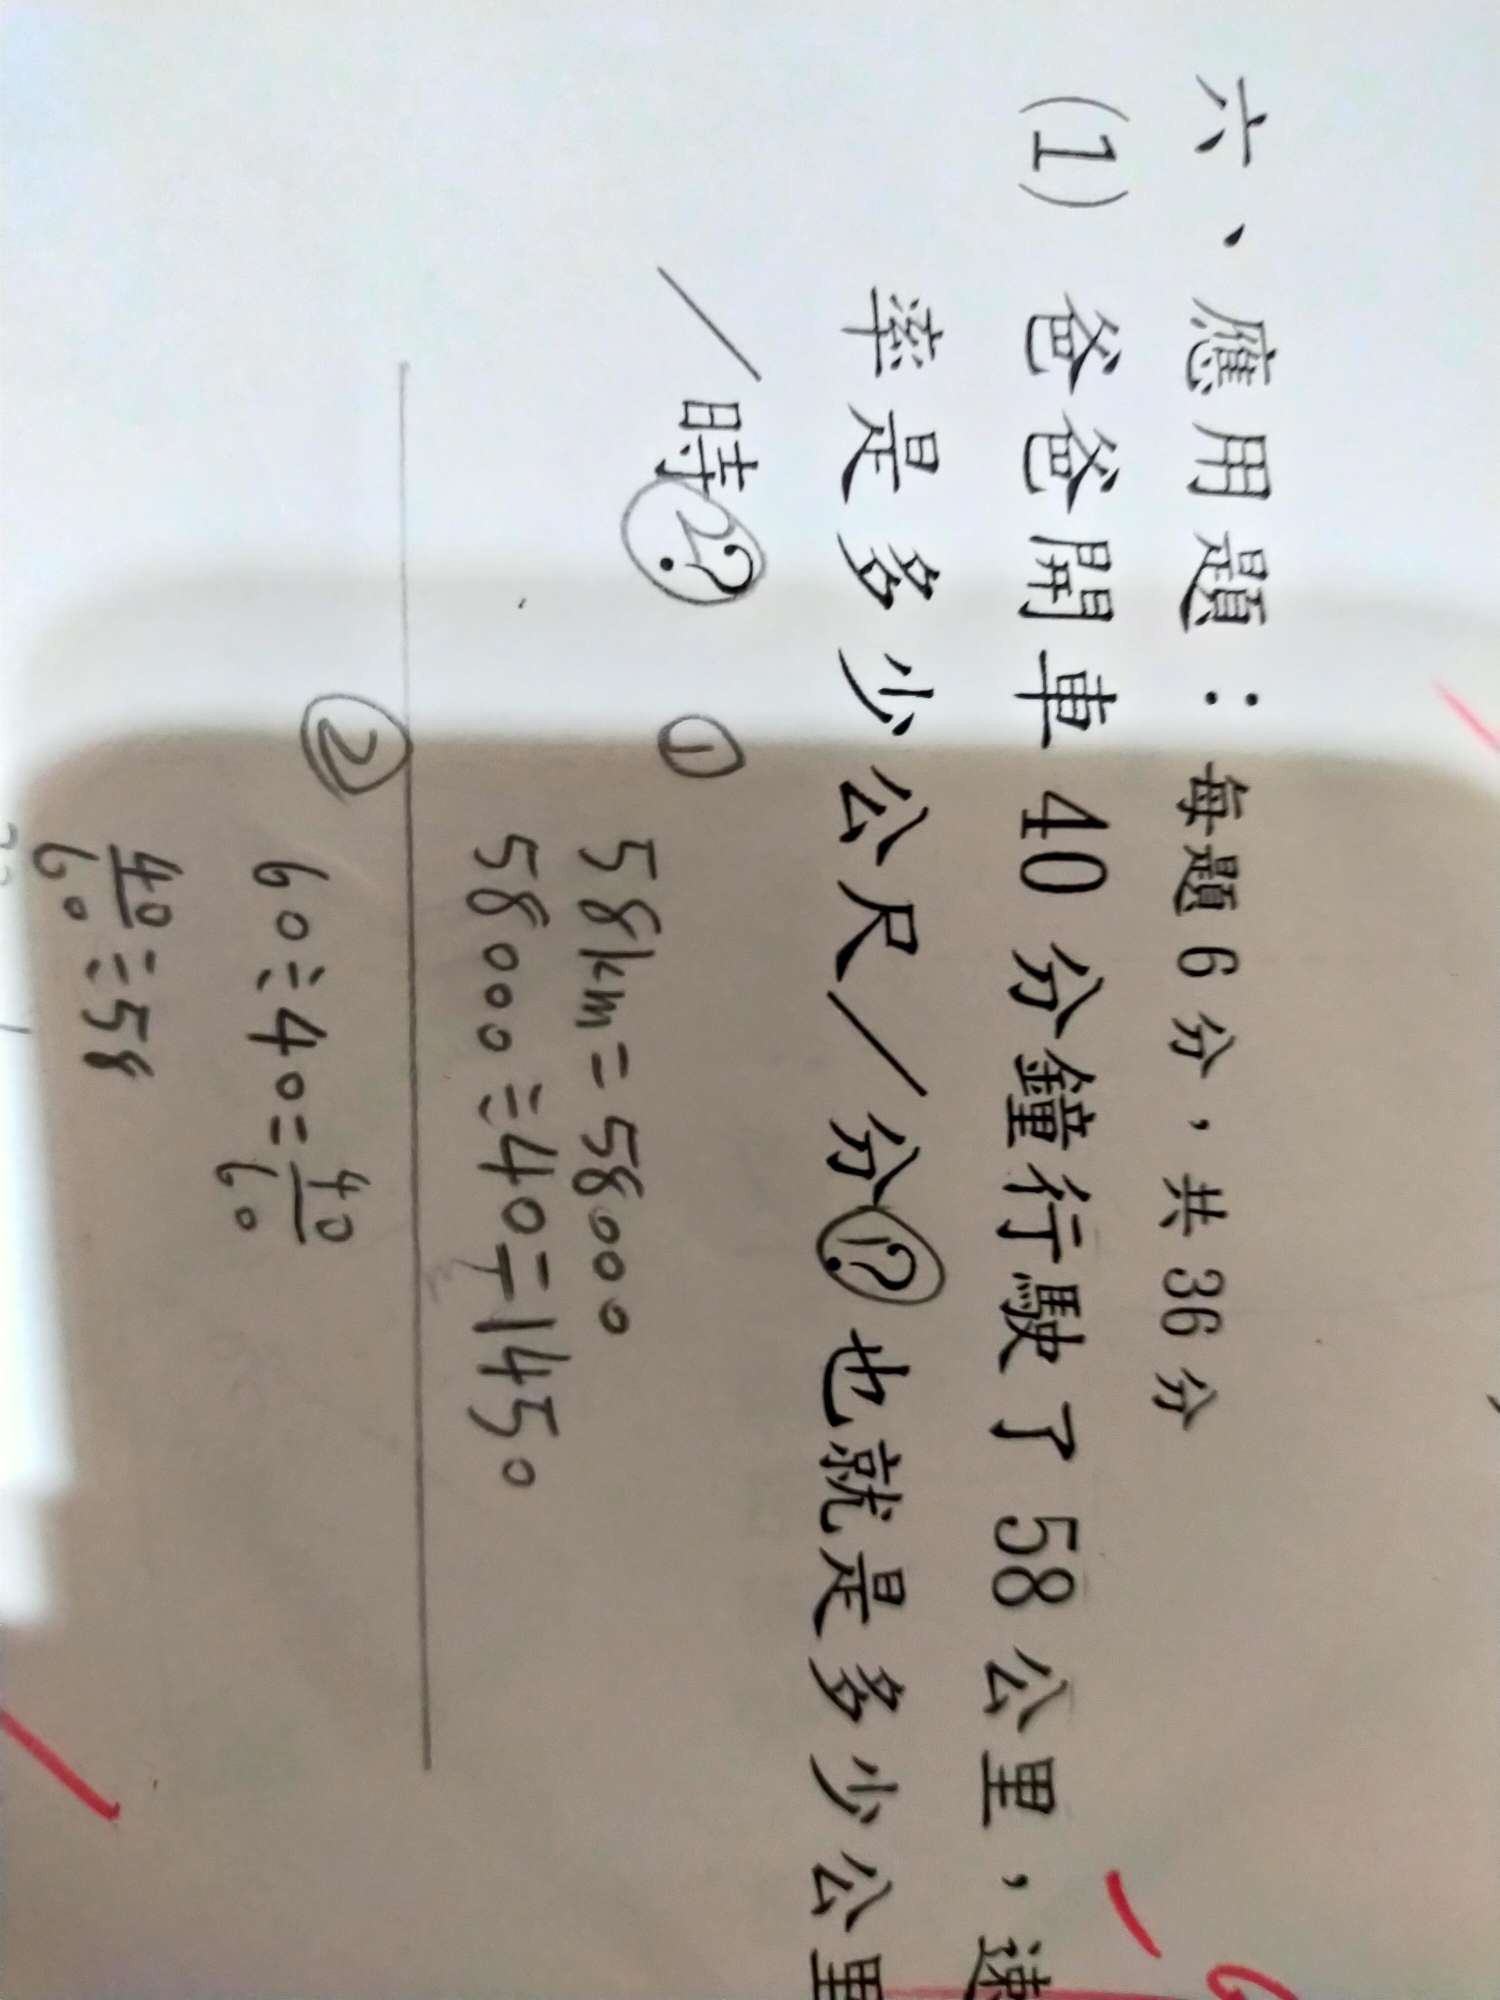 六、應用題：每題6分，共36分
(1) 爸爸開車40分鐘行駛了58公里，速
率是多少公尺／分①？也就是多少公里
／時②？
① 58km=58000
58000÷40=1450
② 60÷40=40/60
40/60÷58